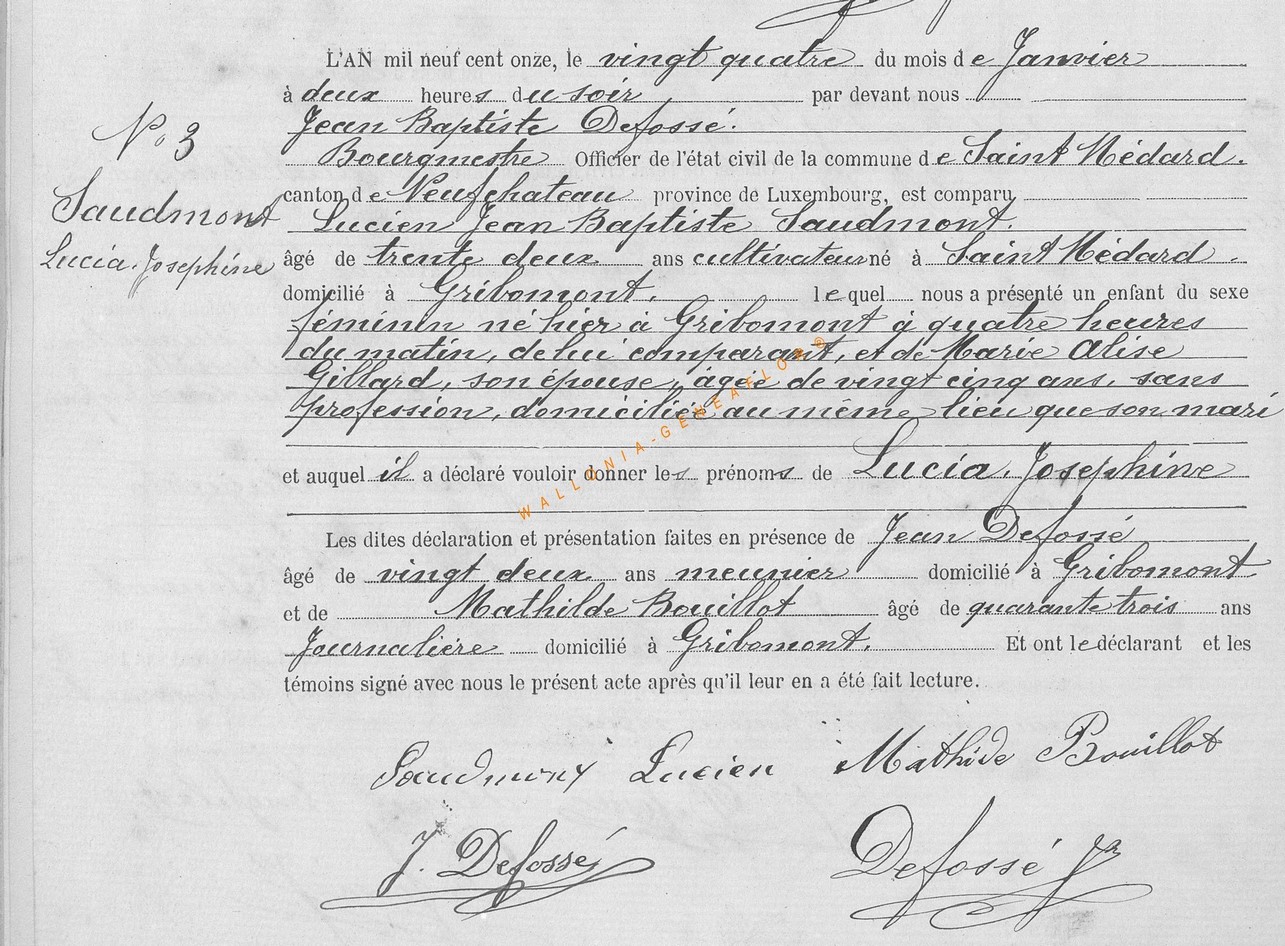 L'AN mil neuf cent onze, le vingt quatre du mois de Janvier
à deux heures du soir par devant nous
Jean Baptiste Defossé.
N° 3
Bourgmestre Officier de l'état civil de la commune de Saint Médard.
canton de Neufchateau province de Luxembourg, est comparu
Saudmont
Lucien Jean Baptiste Saudmont.
Lucia Josephine
âgé de trente deux ans cultivateur né à Saint Médard.
domicilié à Gribomont. lequel nous a présenté un enfant du sexe
féminin né hier à Gribomont à quatre heures
du matin, de lui comparant, et de Marie Alise
Gillard, son épouse, âgée de vingt cinq ans, sans
profession, domiciliée au même lieu que son mari
et auquel il a déclaré vouloir donner les prénoms de Lucia Josephine
WALLONIA-GENEAFLOR ©
Les dites déclaration et présentation faites en présence de Jean Defossé
âgé de vingt deux ans meunier domicilié à Gribomont
et de Mathilde Bouillot âgé de quarante trois ans
Journalière domicilié à Gribomont. Et ont le déclarant et les
témoins signé avec nous le présent acte après qu'il leur en a été fait lecture.
Saudmont Lucien Mathide Bouillot
J. Defossé Defossé Jn